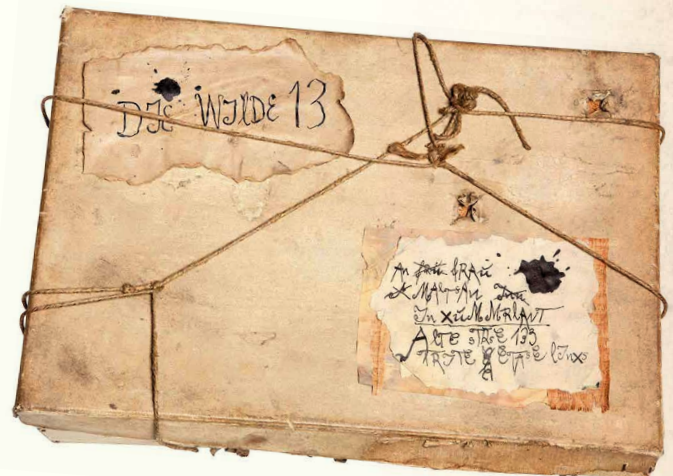 DIE WILDE 13
An FRAu
MALZAN
In XuMMRLANT
ALTE STRSE 133
DRITE ETASE LINX